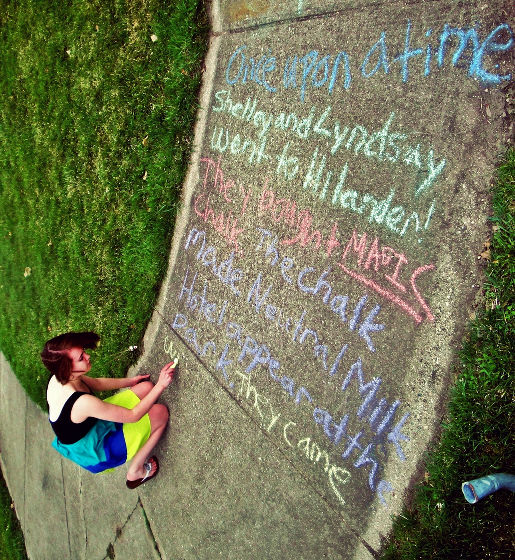 Once upon a time
Shelley and Lyndsay
Went to Hilander!
They bought MAGIC
Chalk. The chalk
Made Neutral Milk
Hotel appear at the
Park. They Came